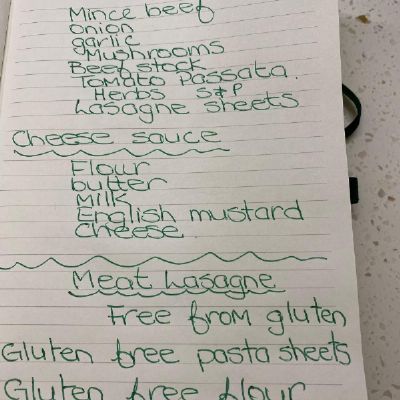 Mince beef
onion
garlic
Mushrooms
Beef stock
Tomato Passata.
Herbs S+P
Lasagne sheets
Cheese sauce
Flour
butter
Milk
English mustard
Cheese
Meat Lasagne
Free from gluten
Gluten free pasta sheets
Gluten free flour